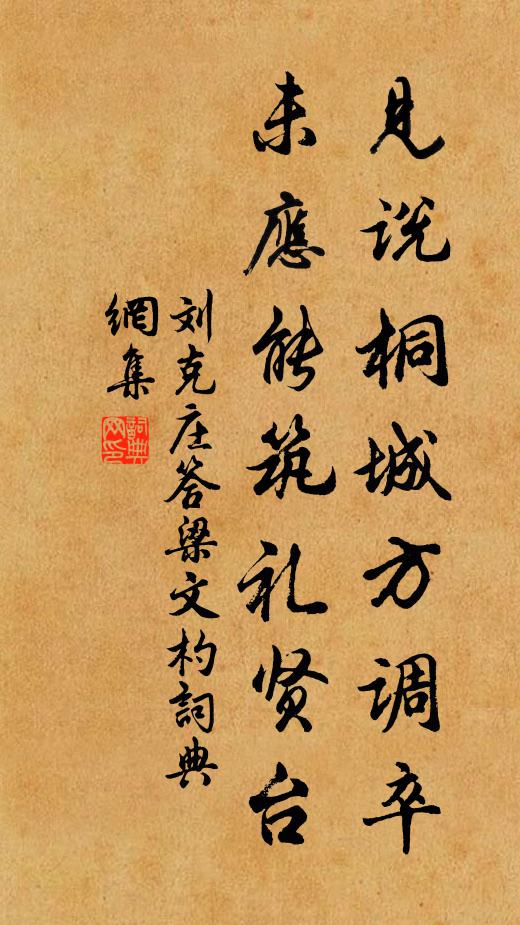 见说桐城方调卒
未應能筑礼贤台
刘克庄答梁文杓詞典
網集
詞典網印